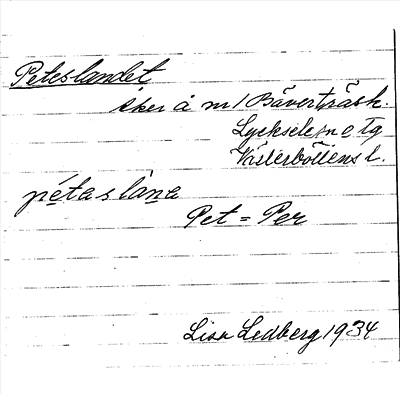 Peteslandet
åker å m/ Bäverträsk.
Lycksele sn o tg
Västerbottens l.
pétaslàna
Pet = Per
Lisa Lidberg 1934